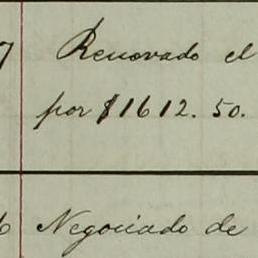 7 Renovado el
por $1612.50.
6 Negociado de